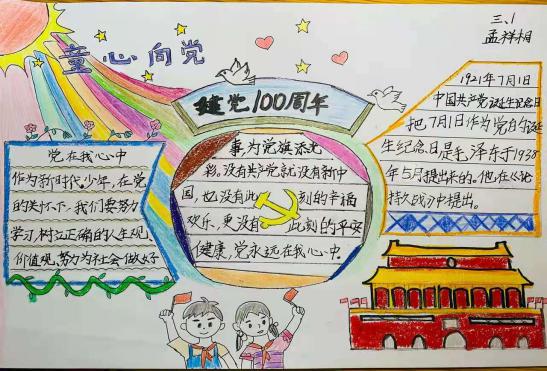 三、1
孟祥相
童心向党
建党100周年
党在我心中
作为新时代少年，在党
的关怀下，我们要努力
学习，树立正确的人生观、
价值观，努力为社会做好
事，为党旗添光
彩。没有共产党就没有新中
国，也没有此刻的幸福
欢乐，更没有此刻的平安
健康，党永远在我心中。
1921年7月1日
中国共产党诞生纪念日
把7月1日作为党的诞
生纪念日，是毛泽东于1938
年5月提出来的。他在《论
持久战》中提出。